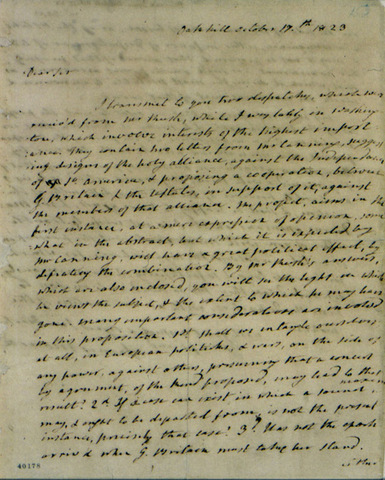 Oakhill October 17th 1823
Dear Sir
I transmit to you two dispatches, which were
receiv'd from Mr Rush, while I was lately in Washing
ton, which involve interests of the highest import
ance. They contain two letters from Mr Canning, suggest
ing designs of the holy alliance, against the Independence
of So America, & proposing a cooperation, between
G. Britain & the UStates, in support of it, against
the members of that alliance. The project, aims, in the
first instance, at a mere expression of opinion, some
what in the abstract, but which it is expected by
Mr Canning, will have a great political effect, by
defeating the combination. By Mr Rush's answers,
which are also enclosed, you will see the light in which
he views the subject, & the extent to which he may have
gone. Many important considerations are involved
in this proposition. 1st Shall we entangle ourselves,
at all, in European politicks, & wars, on the side of
any power, against others, presuming that a concert
by agreement, of the kind proposed, may lead to that
result? 2d If a case can exist, in which a sound maxim
may, & ought to be departed from, is not the present
instance, precisely that case? 3d Has not the epoch
arriv'd when G. Britain must take her stand,
40178